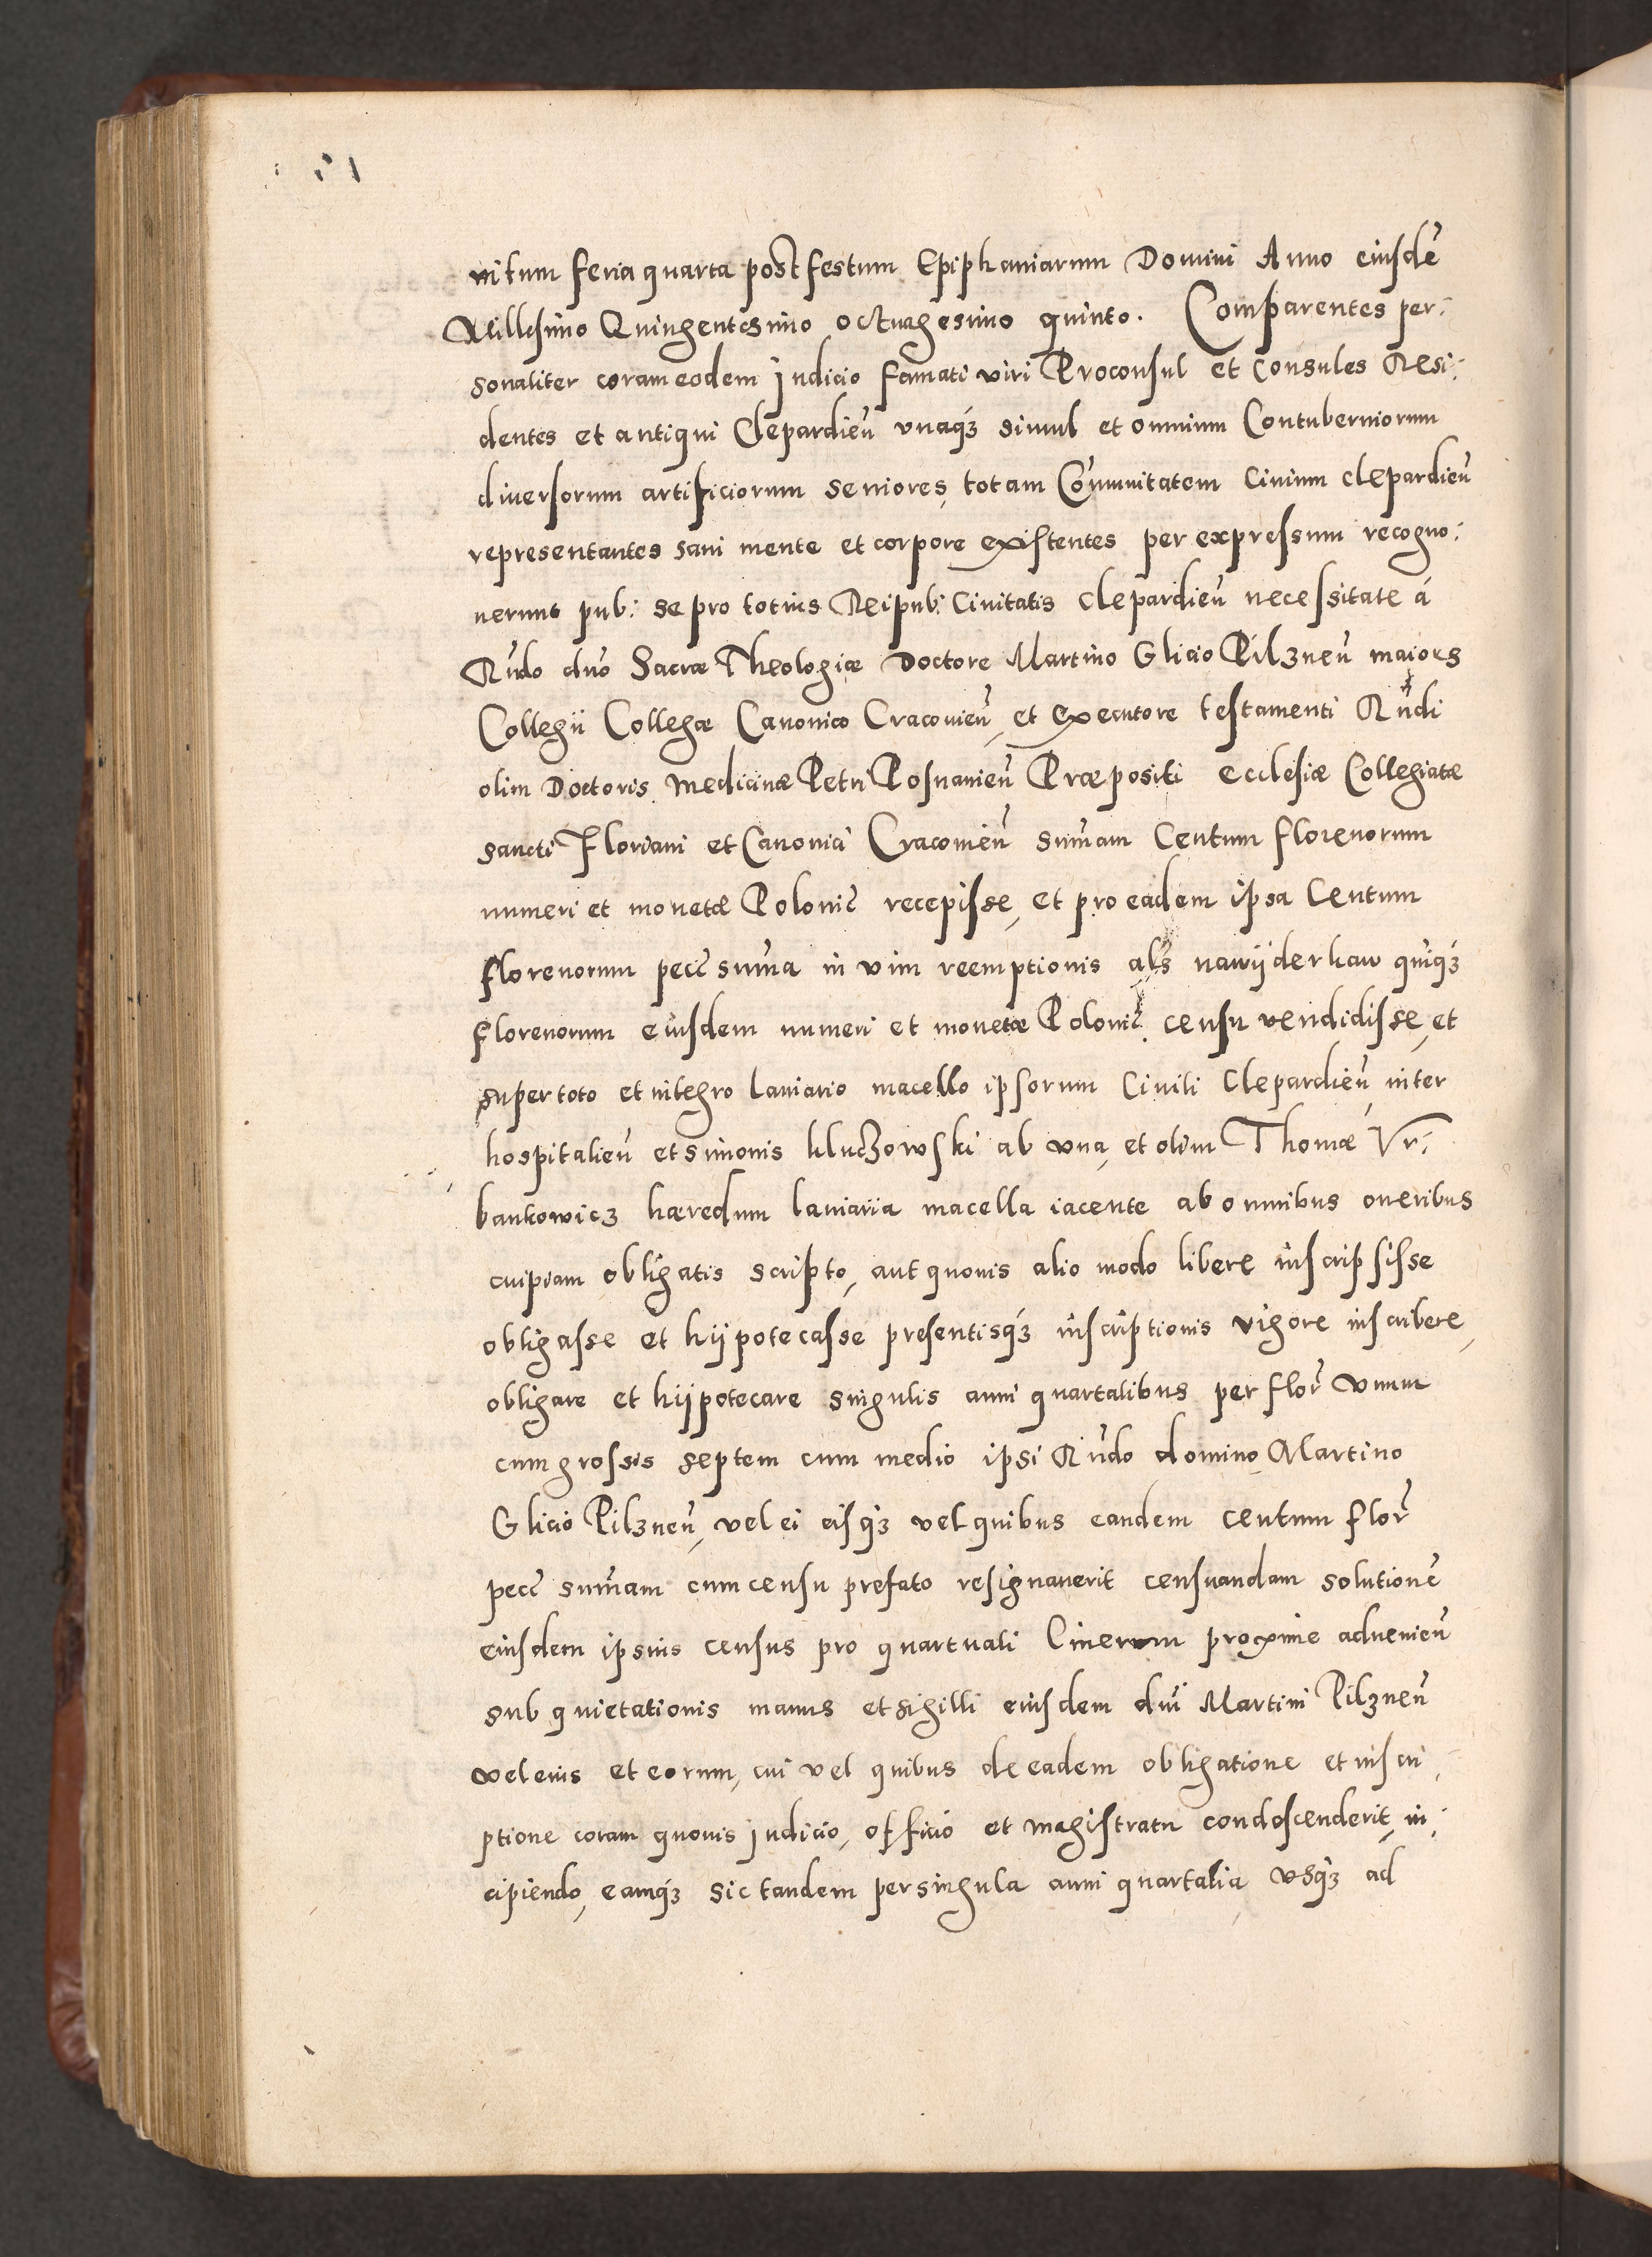 nitum feria quarta post festum Epiphaniarum Domini Anno eiusdẽ
Millesimo Quingentesimo octuagesimo quinto. Comparentes per:
sonaliter coram eodem Judicio famati viri Proconsul et Consules Resi:
dentes et antiqui Clepardieñ vnaqȝ simul et omnium Contuberniorum
diuersorum artificiorum seniores, totam Cõmunitatem Ciuium Clepardieñ
representantes sani mente et corpore existentes per expressum recogno:
uerunt pub: se pro totius Reipub: Ciuitatis Clepardieñ necessitate á
Rñdo dño Sacræ Theologiæ Doctore Martino Glicio Pilzneñ maioris
Collegii Collegæ Canonico Cracouieñ, et Executore testamenti Rñdi
olim Doctoris Medicinæ Petri Posnanieñ Præpositi Ecclesiæ Collegiatæ
sancti Floriani et Canonici Cracouieñ sum̃am Centum florenorum
numeri et monetæ Polonic̃ recepisse, et pro eadem ipsa Centum
florenorum pecc̃ sum̃a in vim reemptionis al̃s nawyderkaw quiqȝ
florenorum eiusdem numeri et monetæ Polonic̃ censu vendidisse, et
super toto et integro laniario macello ipsorum Ciuili Clepardieñ inter
hospitalieñ et Simonis kluczowski ab vna, et olim Thomæ Vr:
bankowicz hæredum laniaria macella iacente ab omnibus oneribus
cuipiam obligatis scripto, aut quouis alio modo libere inscripsisse
obligasse et hypotecasse presentisqȝ inscriptionis vigore inscribere,
obligare et hypotecare singulis anni quartalibus per flor̃ vnum
cum grossis septem cum medio ipsi Rñdo domino Martino
Glicio Pilzneñ, vel ei eisqȝ vel quibus eandem Centum flor̃
pecc̃ sum̃am cum censu prefato resignauerit censuandam solutionẽ
eiusdem ipsius census pro quartuali Cinerum proxime aduenieñ
sub quietationis manus et sigilli eiusdem dñi Martini Pilzneñ
vel eius et eorum, cui vel quibus de eadem obligatione et inscri:
ptione coram quouis Judicio, officio et magistratu condescenderit, in:
cipiendo, eamqȝ sic tandem per singula anni quartalia vsqȝ ad